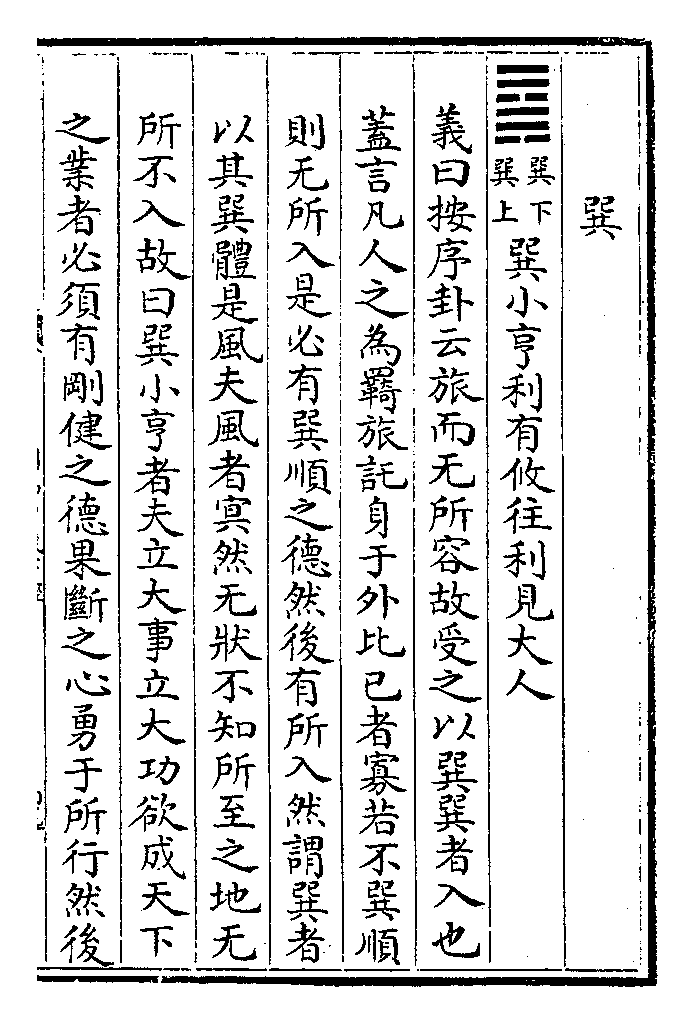 巽
䷸巽下巽上巽小亨利有攸往利見大人
義曰按序卦云旅而无所容故受之以巽巽者入也
蓋言凡人之為羇旅託身于外比已者寡若不巽順
則无所入是必有巽順之德然後有所入然謂巽者
以其巽體是風夫風者冥然无狀不知所至之地无
所不入故曰巽小亨者夫立大事立大功欲成天下
之業者必須有剛健之德果斷之心勇于所行然後